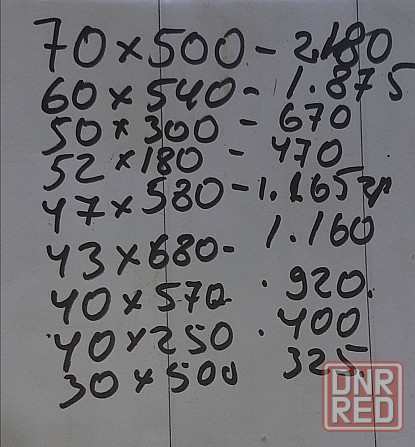 70 x 500 - 2.180
60 x 540 - 1.875
50 x 300 - 670
52 x 180 - 470
47 x 580 - 1.165 гр
43 x 680 - 1.160
40 x 570 . 920.
40 x 250 . 400
30 x 500 325.
DNR
RED